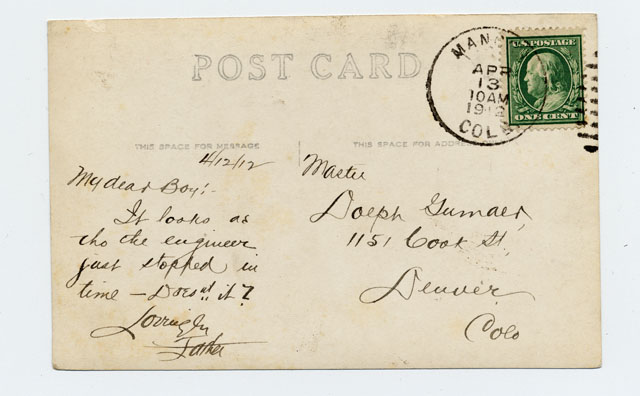 POST CARD
MANC
APR
13
10AM
1912
COLO
U.S. POSTAGE
ONE CENT
THIS SPACE FOR MESSAGE
THIS SPACE FOR ADDRESS
4/12/12
My dear Boy:-
It looks as
tho the engineer
just stopped in
time – Doesn't it?
Lovingly
Father
Master
Dolph Gumaer
1151 Cook St.
Denver
Colo